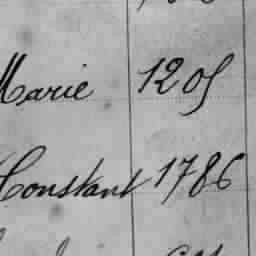 Marie 1205
Constant 1786